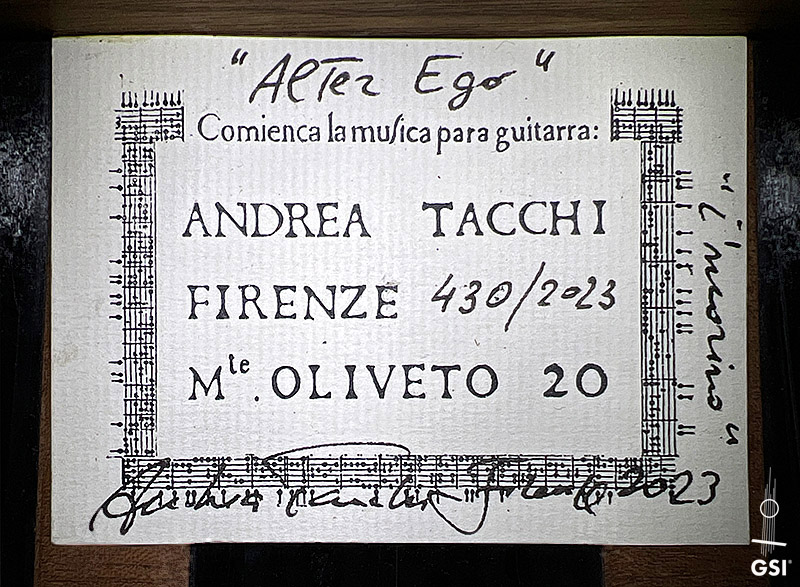 "Alter Ego"
Comienca la muſica para guitarra:
ANDREA TACCHI
FIRENZE 430/2023
Mte. OLIVETO 20
Andrea Tacchi Firenze 2023
GSI